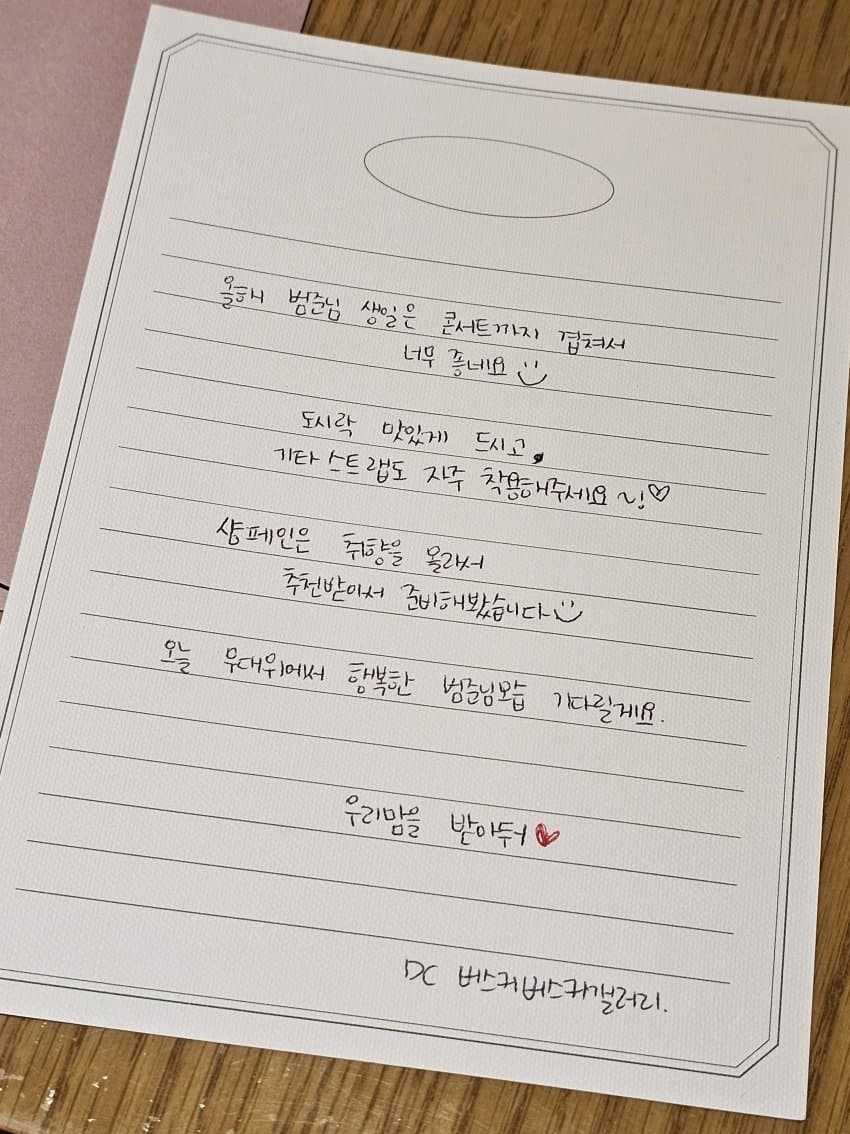 올해 범준님 생일은 콘서트까지 겹쳐서
너무 좋네요
도시락 맛있게 드시고,
기타 스트랩도 자주 착용해주세요~!♡
샴페인은 취향을 몰라서
추천받아서 준비해봤습니다
오늘 무대위에서 행복한 범준님모습 기다릴게요.
우리맘을 받아둬♥
DC 버스커버스커갤러리.